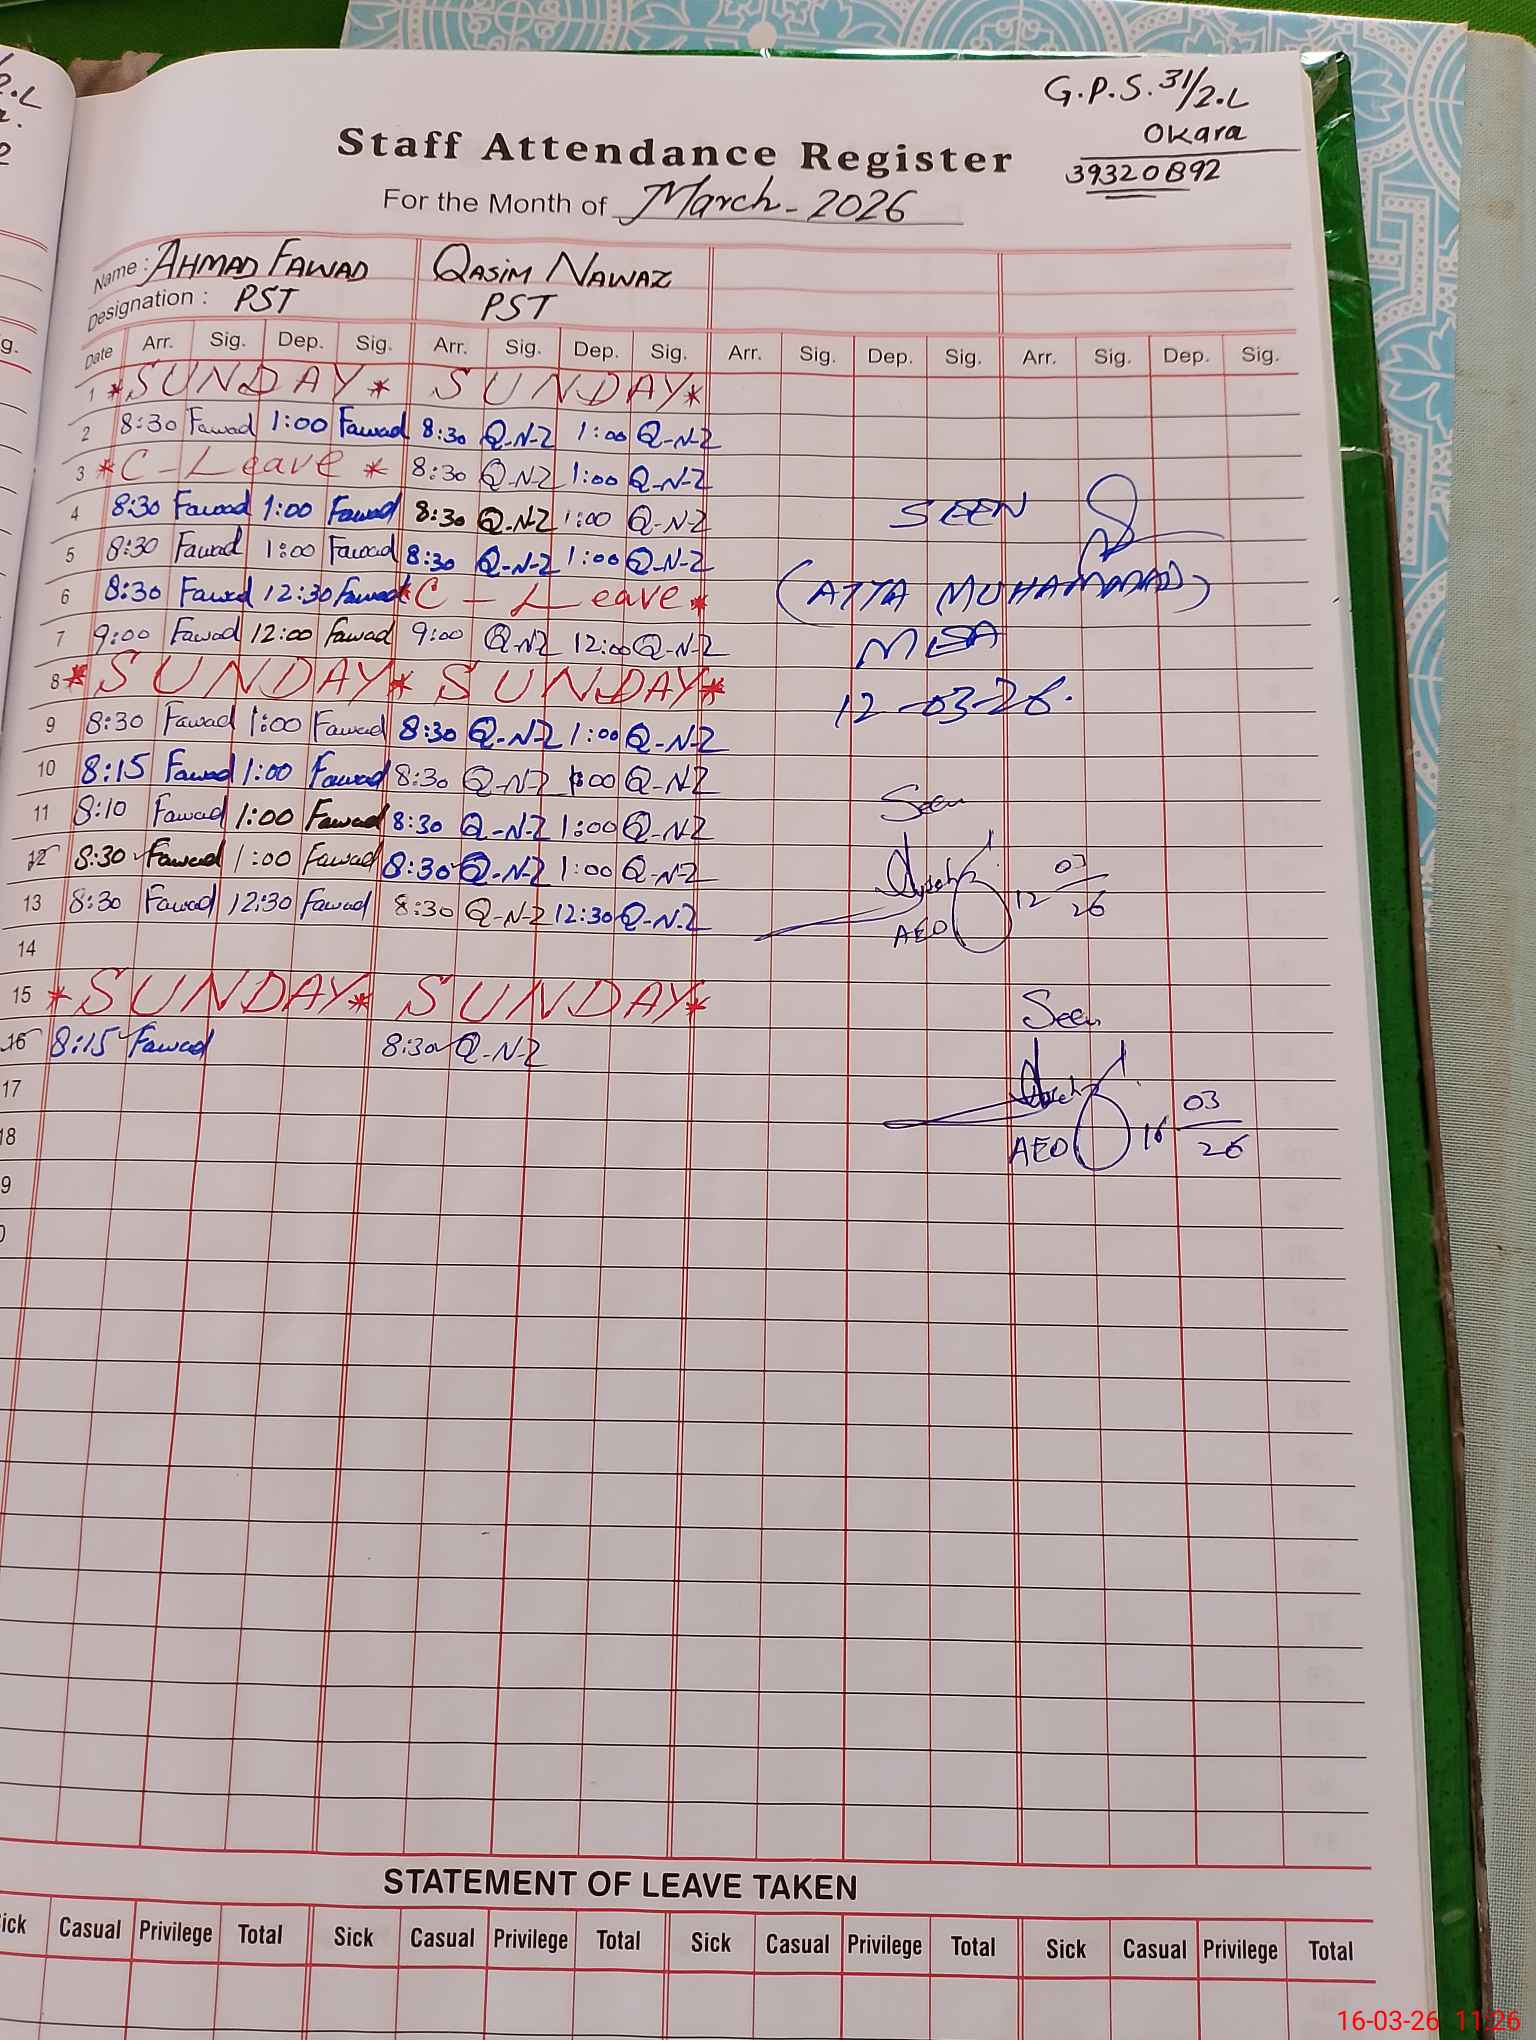 G.P.S. 31/2.L
Okara
39320892
Staff Attendance Register
For the Month of March - 2026
Name : AHMAD FAWAD QASIM NAWAZ
Designation : PST PST
Date Arr. Sig. Dep. Sig. Arr. Sig. Dep. Sig. Arr. Sig. Dep. Sig. Arr. Sig. Dep. Sig.
1 *SUNDAY* SUNDAY*
2 8:30 Fawad 1:00 Fawad 8:30 Q-N-Z 1:00 Q-N-Z
3 *C-Leave* 8:30 Q-N-Z 1:00 Q-N-Z
4 8:30 Fawad 1:00 Fawad 8:30 Q-N-Z 1:00 Q-N-Z
SEEN
5 8:30 Fawad 1:00 Fawad 8:30 Q-N-Z 1:00 Q-N-Z
6 8:30 Fawad 12:30 Fawad *C-Leave*
(ATTA MUHAMMAD)
7 9:00 Fawad 12:00 Fawad 9:00 Q-N-Z 12:00 Q-N-Z
MEA
8 *SUNDAY* SUNDAY*
12-03-26.
9 8:30 Fawad 1:00 Fawad 8:30 Q-N-Z 1:00 Q-N-Z
10 8:15 Fawad 1:00 Fawad 8:30 Q-N-Z 1:00 Q-N-Z
Seen
11 8:10 Fawad 1:00 Fawad 8:30 Q-N-Z 1:00 Q-N-Z
12 8:30 Fawad 1:00 Fawad 8:30 Q-N-Z 1:00 Q-N-Z
13 8:30 Fawad 12:30 Fawad 8:30 Q-N-Z 12:30 Q-N-Z
AEO 12 03/26
14
15 *SUNDAY* SUNDAY*
Seen
16 8:15 Fawad 8:30 Q-N-Z
17
18
AEO 16 03/26
9
STATEMENT OF LEAVE TAKEN
ick Casual Privilege Total Sick Casual Privilege Total Sick Casual Privilege Total Sick Casual Privilege Total
16-03-26 11:26